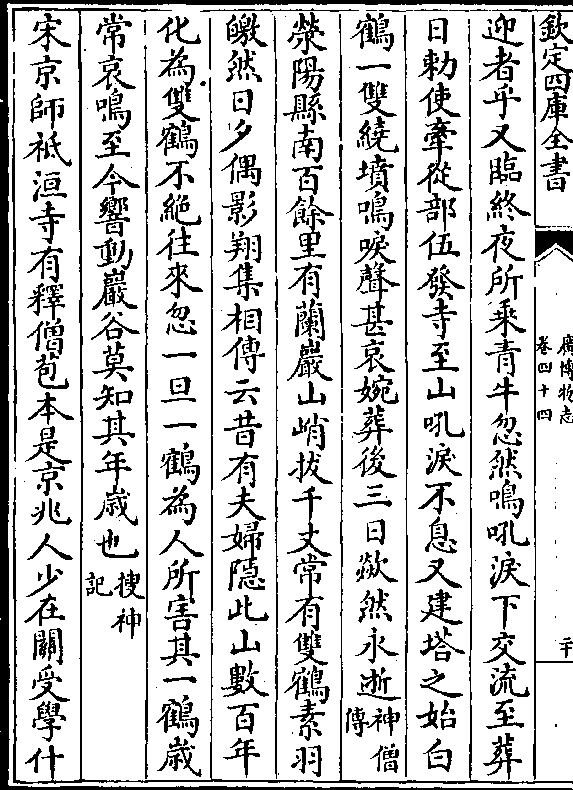 欽定四庫全書
廣博物志
卷四十四
二十
迎者乎又臨終夜所乘青牛忽然鳴吼淚下交流至葬
日勅使牽從部伍發寺至山吼淚不息又建塔之始白
鶴一雙繞墳鳴唳聲甚哀婉葬後三日歘然永逝神僧傳
滎陽縣南百餘里有蘭巖山峭拔千丈常有雙鶴素羽
皦然日夕偶影翔集相傳云昔有夫婦隱此山數百年
化為雙鶴不絶往來忽一旦一鶴為人所害其一鶴歲
常哀鳴至今響動巖谷莫知其年歲也搜神記
宋京師祗洹寺有釋僧苞本是京兆人少在關受學什